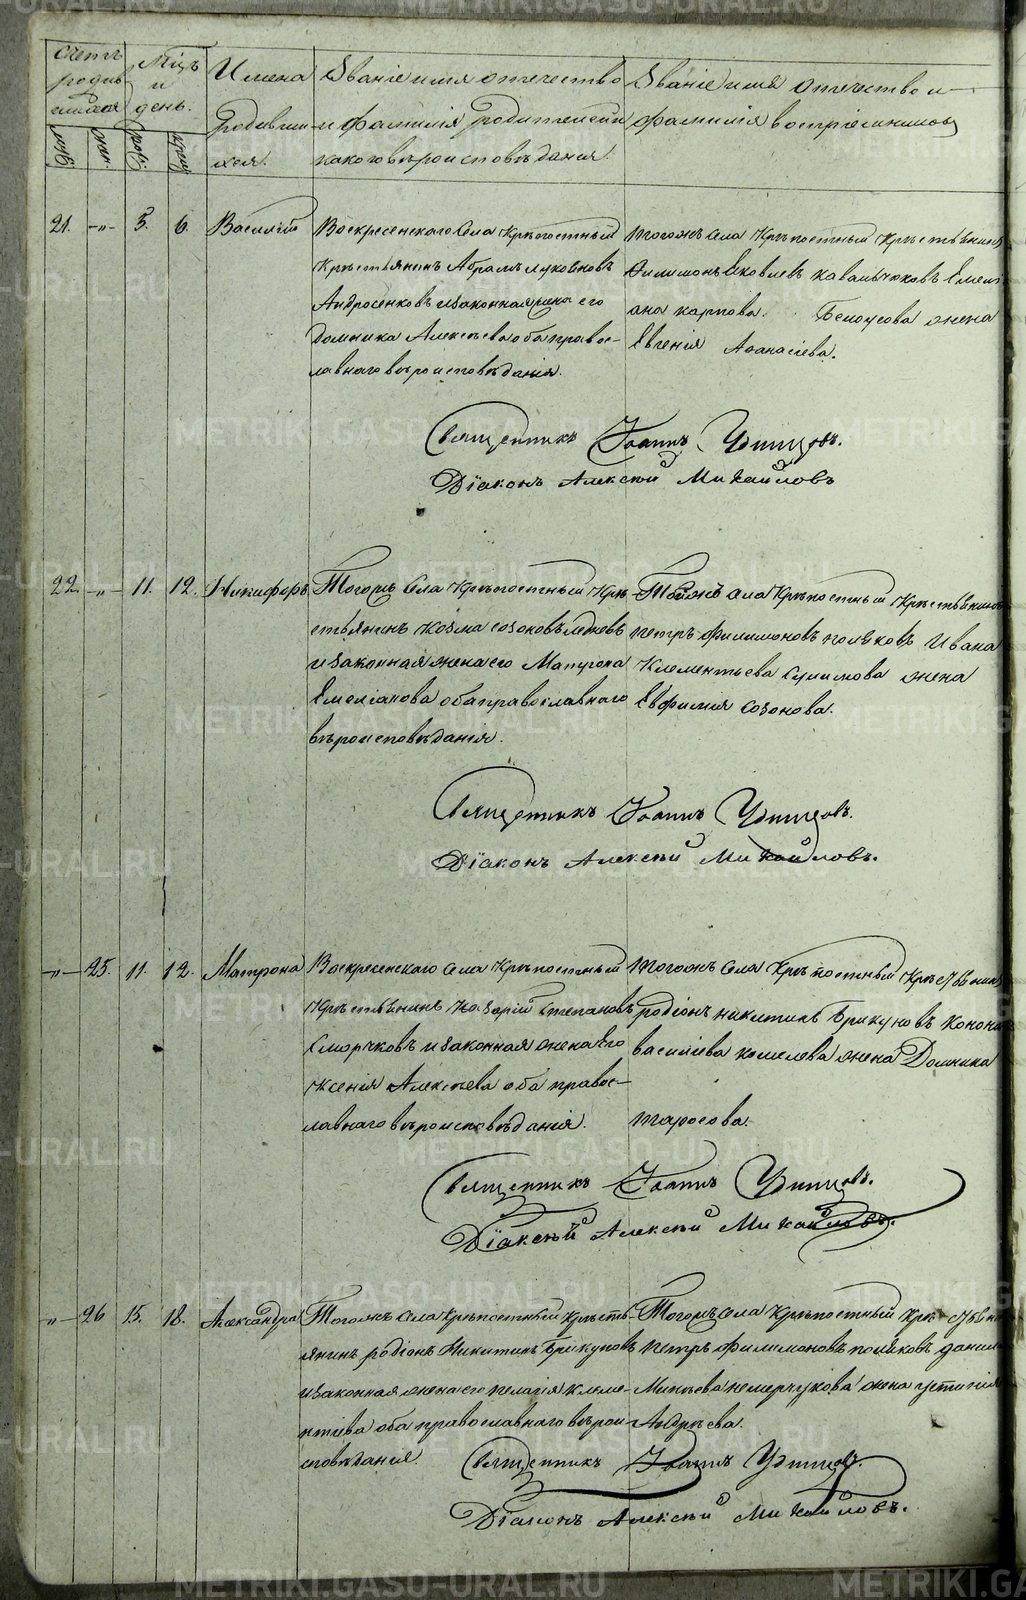 Счетъ родив шихся
Мѣцъ и день.
Имена Родивши хся.
Званіе имя отечество
и фамилія родителей и
какого вѣроисповѣданія.
Званіе имя отечество и
фамилія воспріемниковъ
муж. жен. рожд. крещ.
21. -"- 5. 6. Василій
Воскресенскаго Села Крѣпостный
Крѣстьянинъ Абрамъ
Андросенковъ и законная жена его
Домника Алексѣева оба правос-
лавнаго вѣроисповѣданія.
Тогожъ Села Крѣпостный Крѣстьянинъ
Филимонъ Яковлевъ Емелі
ана Карпова Белоусова жена
Евгенія Афанасіева.
Священникъ Іоаннъ
Діаконъ Алексѣй Михайловъ
22. -"- 11. 12. Никифоръ
Тогожъ Села Крѣпостный Крѣ
стьянинъ Козма Созоновъ
и законная жена его Матрона
Емеліанова оба православнаго
вѣроисповѣданія.
Тогожъ Села Крѣпостный Крѣстьянинъ
Петръ Филимоновъ Поляковъ Ивана
Клементьева жена
Евфимія Созонова.
Священникъ Іоаннъ
Діаконъ Алексѣй Михайловъ.
-"- 25. 11. 12. Матрона
Воскресенскаго Села Крѣпостный
Крѣстьянинъ Назарій Степановъ
Сморчковъ и законная жена его
Ксенія Алексѣева оба правос-
лавнаго вѣроисповѣданія.
Тогожъ Села Крѣпостный Крѣстьянинъ
Родіонъ Никитинъ Брикуновъ Конона
Василіева Кошелева жена Домника
Тарасова.
Священникъ Іоаннъ
Діаконъ Алексѣй Михайловъ.
-"- 26 15. 18. Александра
Тогожъ Села Крѣпостный Крѣсть-
янинъ Родіонъ Никитинъ Брикуновъ
и законная жена его Пелагія Клеме-
нтіева оба православнаго вѣрои-
сповѣданія.
Тогожъ Села Крѣпостный Крѣстьянинъ
Петръ Филимоновъ Поляковъ Данил
жена Устинія
Андрѣева.
Священникъ Іоаннъ
Діаконъ Алексѣй Михайловъ.
METRIKI.GASO-URAL.RU